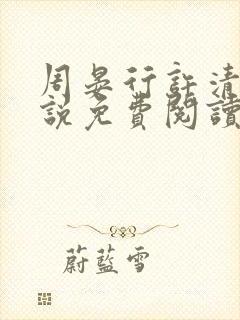 周晏行許清
說免費閱讀
蔚藍雪